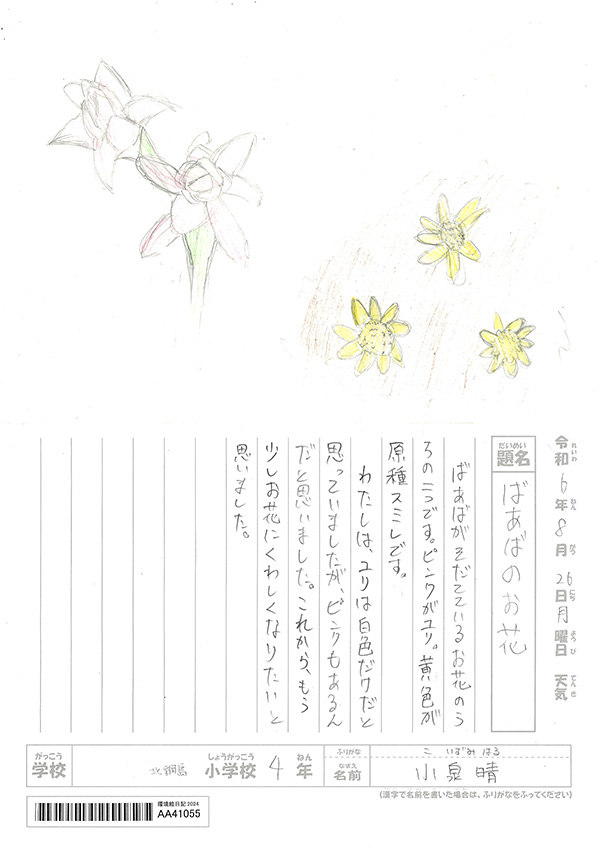 令和6年8月26日月曜日 天気
れいわ ねん がつ にち ようび てんき
だいめい
題名 ばあばのお花
ばあばがそだてているお花のう
ちの二つです。ピンクがユリ。黄色が
原種スミレです。
わたしは、ユリは白色だけだと
思っていましたが、ピンクもあるん
だと思いました。これから、もう
少しお花にくわしくなりたいと
思いました。
がっこう しょうがっこう ねん ふりがな こいずみはる
学校 北綱島 小学校 4年 なまえ 名前 小泉晴
(漢字で名前を書いた場合は、ふりがなをふってください)
環境絵日記2024
AA41055